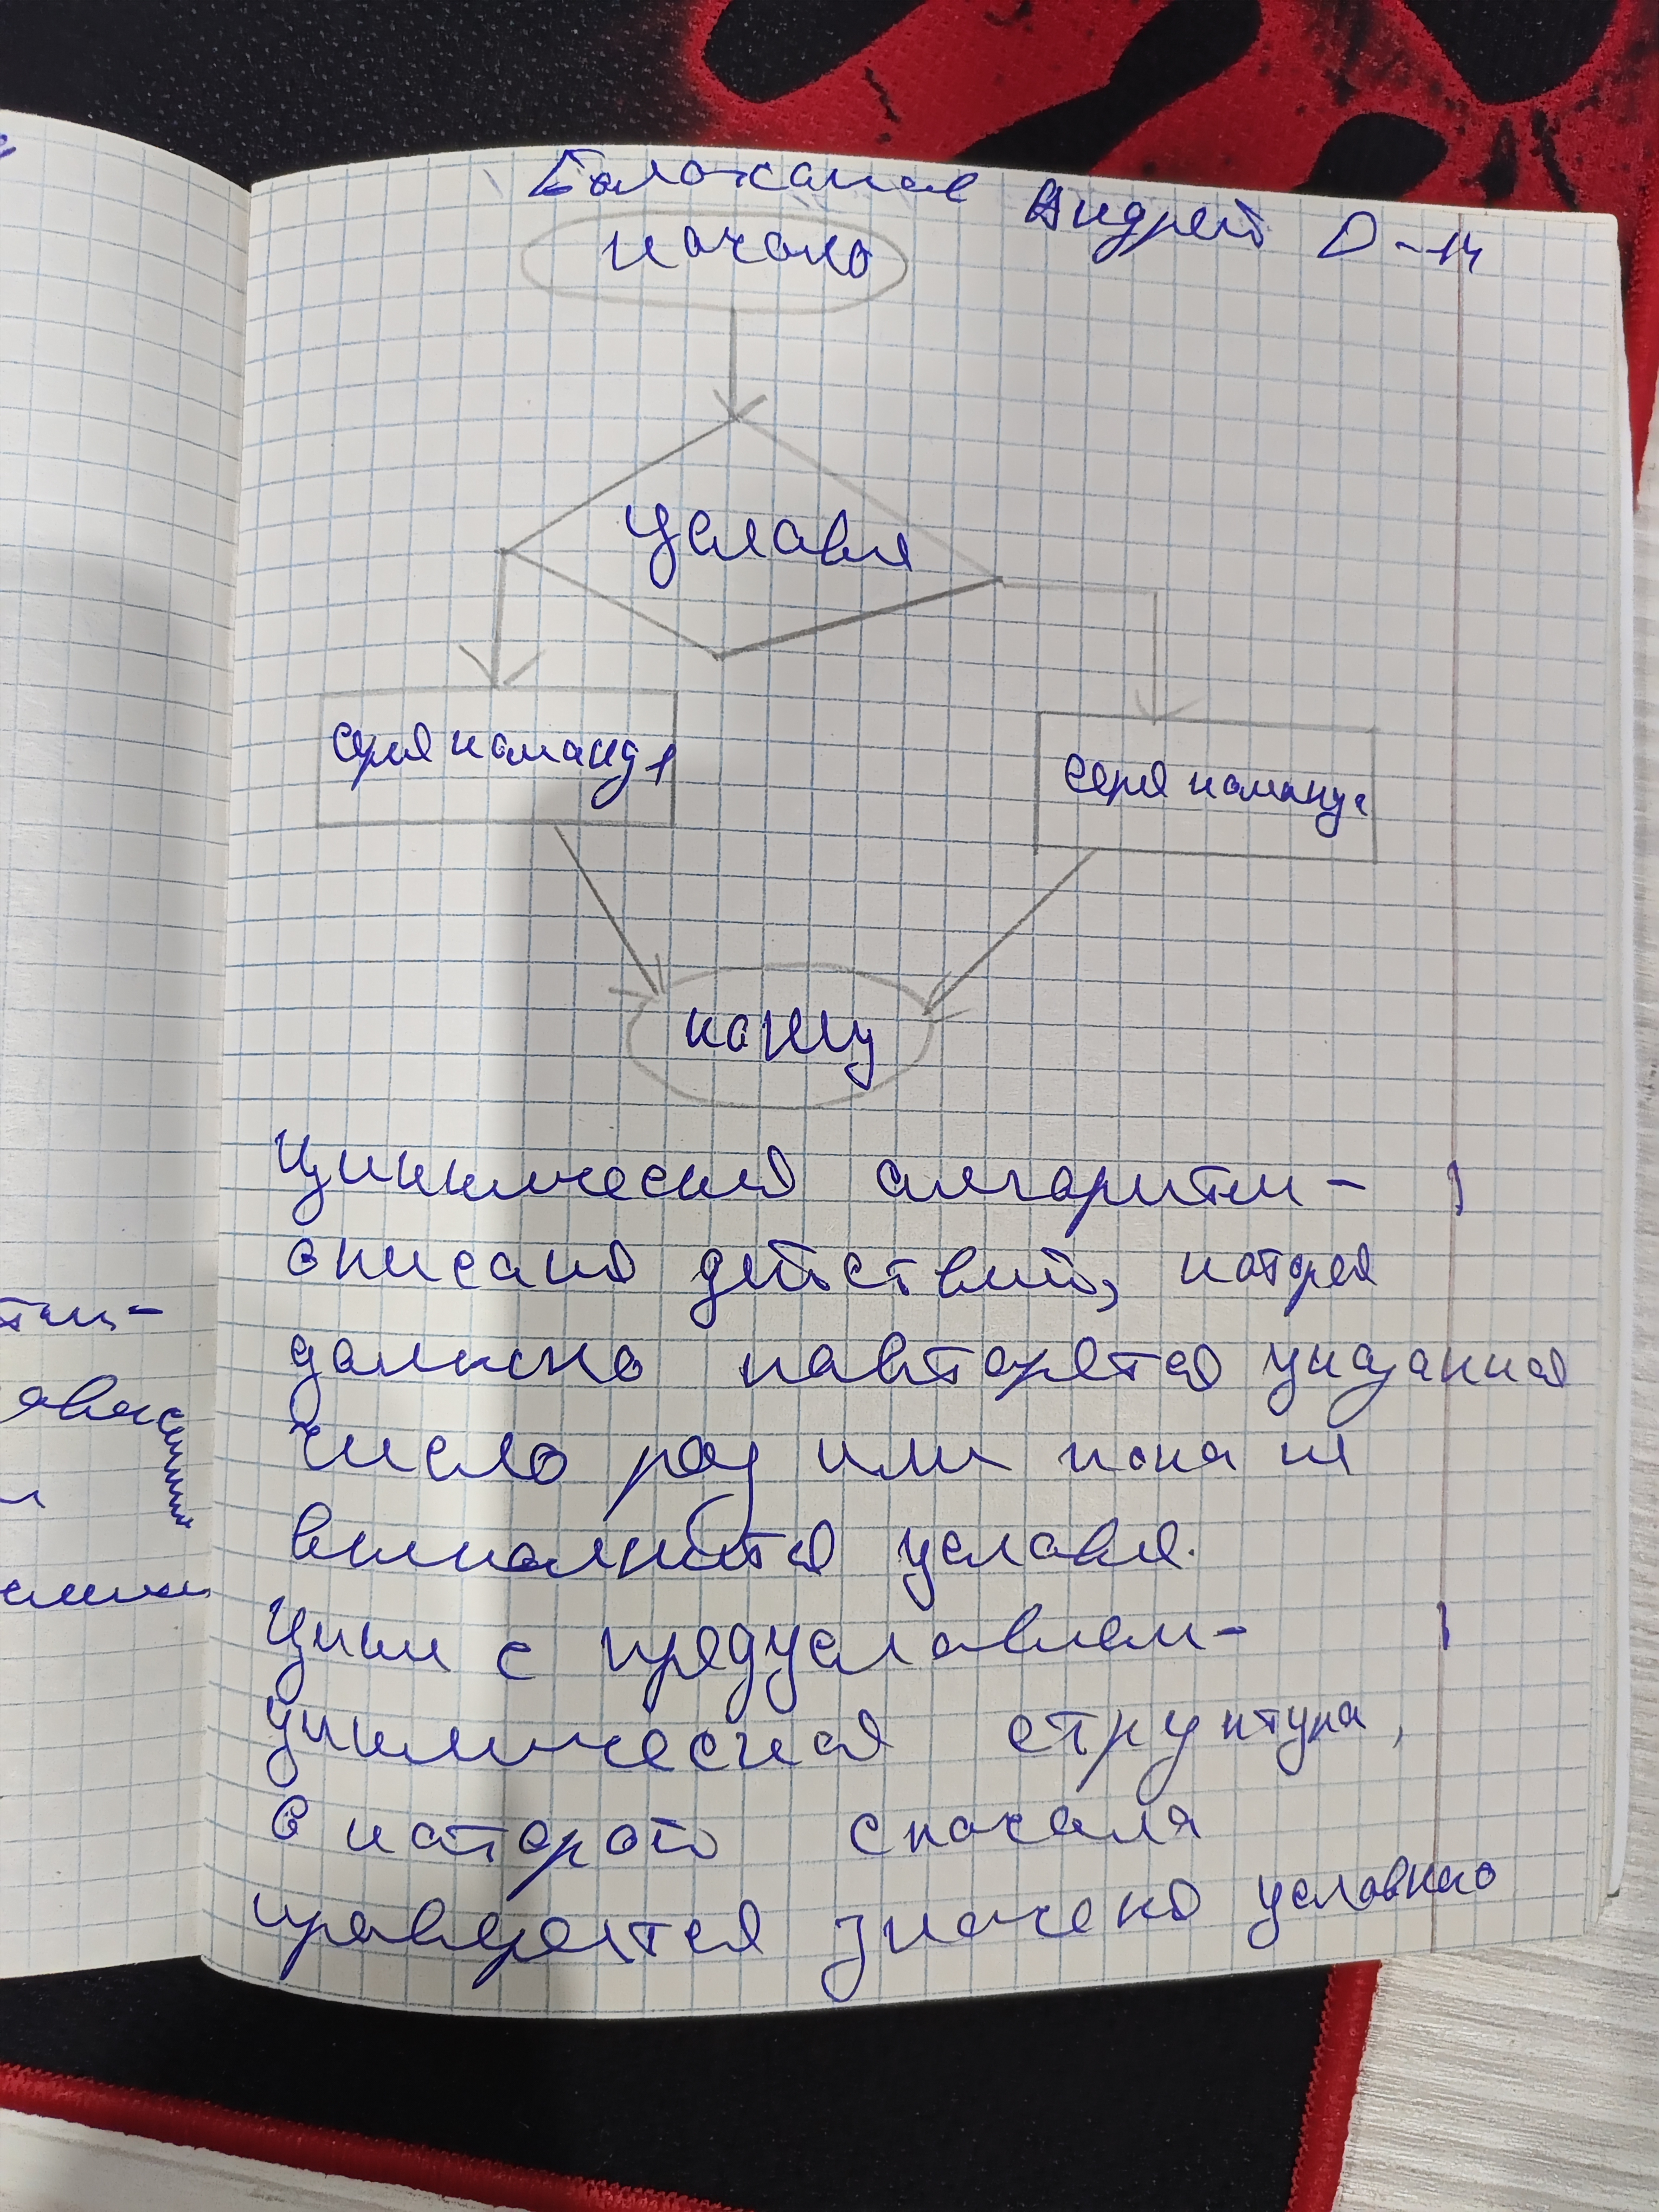 Андрей D-14
начало
условя
серя команд 1
серя команд
конец
Циклическия алгоритм -
описания действий, каторея
должно павторятся указания
число раз или пока не
выполнится условя.
Цикл с предусловием-
циклическая структура,
в каторой сначаля
праверяется значеня условнаго
тм-